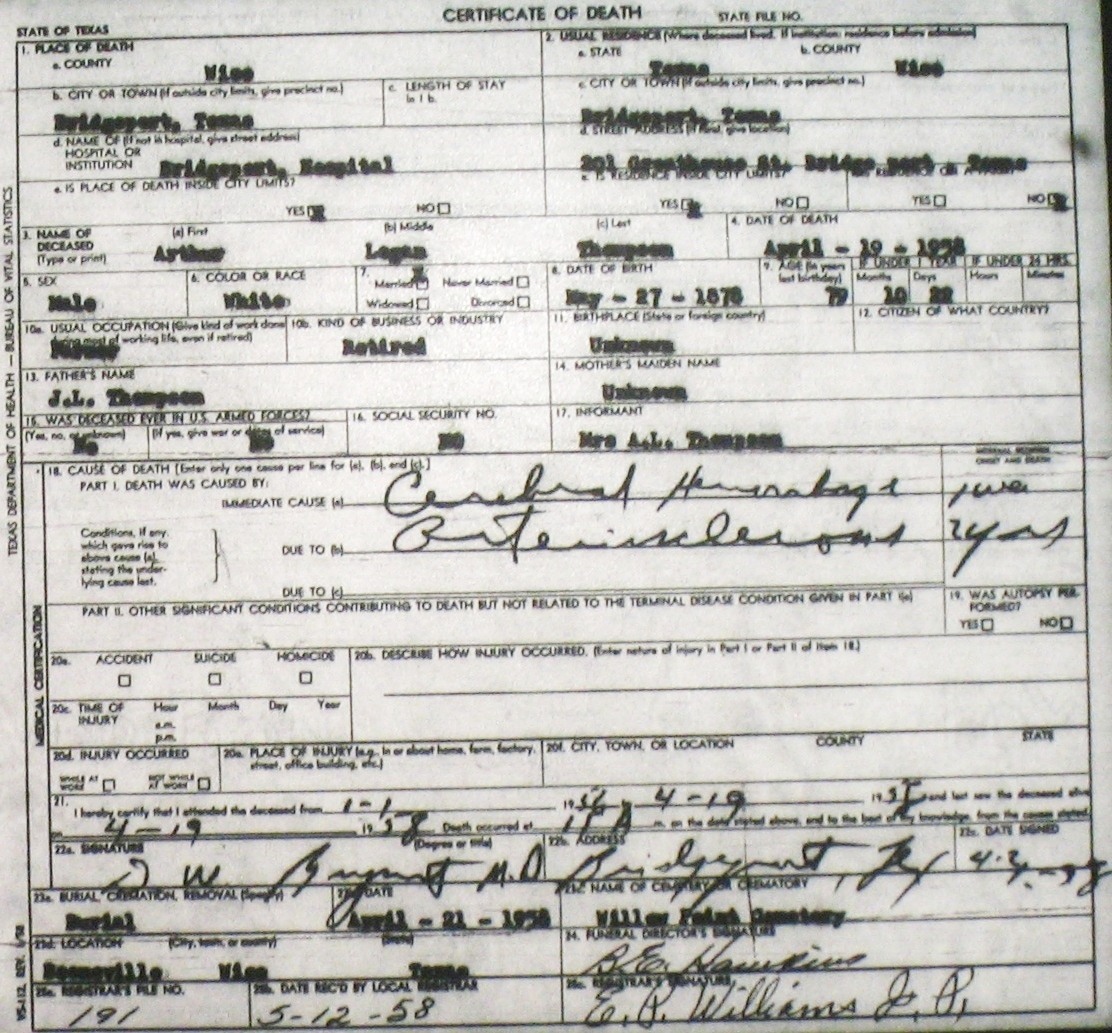 CERTIFICATE OF DEATH
STATE OF TEXAS
STATE FILE NO.
1. PLACE OF DEATH
a. COUNTY
Wise
2. USUAL RESIDENCE (Where deceased lived. If institution: residence before admission)
a. STATE
Texas
b. COUNTY
Wise
b. CITY OR TOWN (If outside city limits, give precinct no.)
Bridgeport, Texas
c. LENGTH OF STAY
in 1 b.
c. CITY OR TOWN (If outside city limits, give precinct no.)
Bridgeport, Texas
d. NAME OF (If not in hospital, give street address)
HOSPITAL OR
INSTITUTION
Bridgeport, Hospital
d. STREET ADDRESS (If rural, give location)
201 Greathouse St. Bridge port , Texas
e. IS PLACE OF DEATH INSIDE CITY LIMITS?
YES NO
e. IS RESIDENCE INSIDE CITY LIMITS?
YES NO
YES NO
3. NAME OF
DECEASED
(Type or print)
(a) First
Arthur
(b) Middle
Logan
(c) Last
Thompson
4. DATE OF DEATH
April - 19 - 1958
5. SEX
Male
6. COLOR OR RACE
White
7.
Married Never Married
Widowed Divorced
8. DATE OF BIRTH
May - 27 - 1878
9. AGE (In years
last birthday)
79
IF UNDER 1 YEAR
Months Days
10 22
IF UNDER 24 HRS.
Hours Minutes
10a. USUAL OCCUPATION (Give kind of work done
during most of working life, even if retired)
Farmer
10b. KIND OF BUSINESS OR INDUSTRY
Retired
11. BIRTHPLACE (State or foreign country)
Unknown
12. CITIZEN OF WHAT COUNTRY?
13. FATHER'S NAME
J.L. Thompson
14. MOTHER'S MAIDEN NAME
Unknown
15. WAS DECEASED EVER IN U.S. ARMED FORCES?
(Yes, no, or unknown) (If yes, give war or dates of service)
No No
16. SOCIAL SECURITY NO.
NO
17. INFORMANT
Mrs A.L. Thompson
18. CAUSE OF DEATH [Enter only one cause per line for (a), (b), and (c).]
INTERVAL BETWEEN
ONSET AND DEATH
PART I. DEATH WAS CAUSED BY:
IMMEDIATE CAUSE (a) Cerebral Hemorrhage
Conditions, if any,
which gave rise to
above cause (a),
stating the under-
lying cause last.
DUE TO (b)
DUE TO (c)
PART II. OTHER SIGNIFICANT CONDITIONS CONTRIBUTING TO DEATH BUT NOT RELATED TO THE TERMINAL DISEASE CONDITION GIVEN IN PART I(a)
19. WAS AUTOPSY PER-
FORMED?
YES NO
20a. ACCIDENT SUICIDE HOMICIDE
20b. DESCRIBE HOW INJURY OCCURRED. (Enter nature of injury in Part I or Part II of item 18.)
20c. TIME OF
INJURY
Hour Month Day Year
a.m.
p.m.
20d. INJURY OCCURRED
WHILE AT
WORK
NOT WHILE
AT WORK
20e. PLACE OF INJURY (e.g., in or about home, farm, factory,
street, office building, etc.)
20f. CITY, TOWN, OR LOCATION COUNTY STATE
21.
I hereby certify that I attended the deceased from 1-1 1956, 4-19 1958 and last saw the deceased alive
on 4-19 1958 Death occurred at m. on the date stated above, and to the best of my knowledge, from the causes stated.
22a. SIGNATURE
(Degree or title)
M.D
22b. ADDRESS
Bridgeport, Tex
22c. DATE SIGNED
23a. BURIAL, CREMATION, REMOVAL (Specify)
Burial
23b. DATE
April - 21 - 1958
23c. NAME OF CEMETERY OR CREMATORY
Willow Point Cemetery
23d. LOCATION (City, town, or county) (State)
Boonsville Wise Texas
24. FUNERAL DIRECTOR'S SIGNATURE
B.E. Hawkins
25a. REGISTRAR'S FILE NO.
191
25b. DATE REC'D BY LOCAL REGISTRAR
5-12-58
25c. REGISTRAR'S SIGNATURE
E. P. Williams J. P.
TEXAS DEPARTMENT OF HEALTH — BUREAU OF VITAL STATISTICS
MEDICAL CERTIFICATION